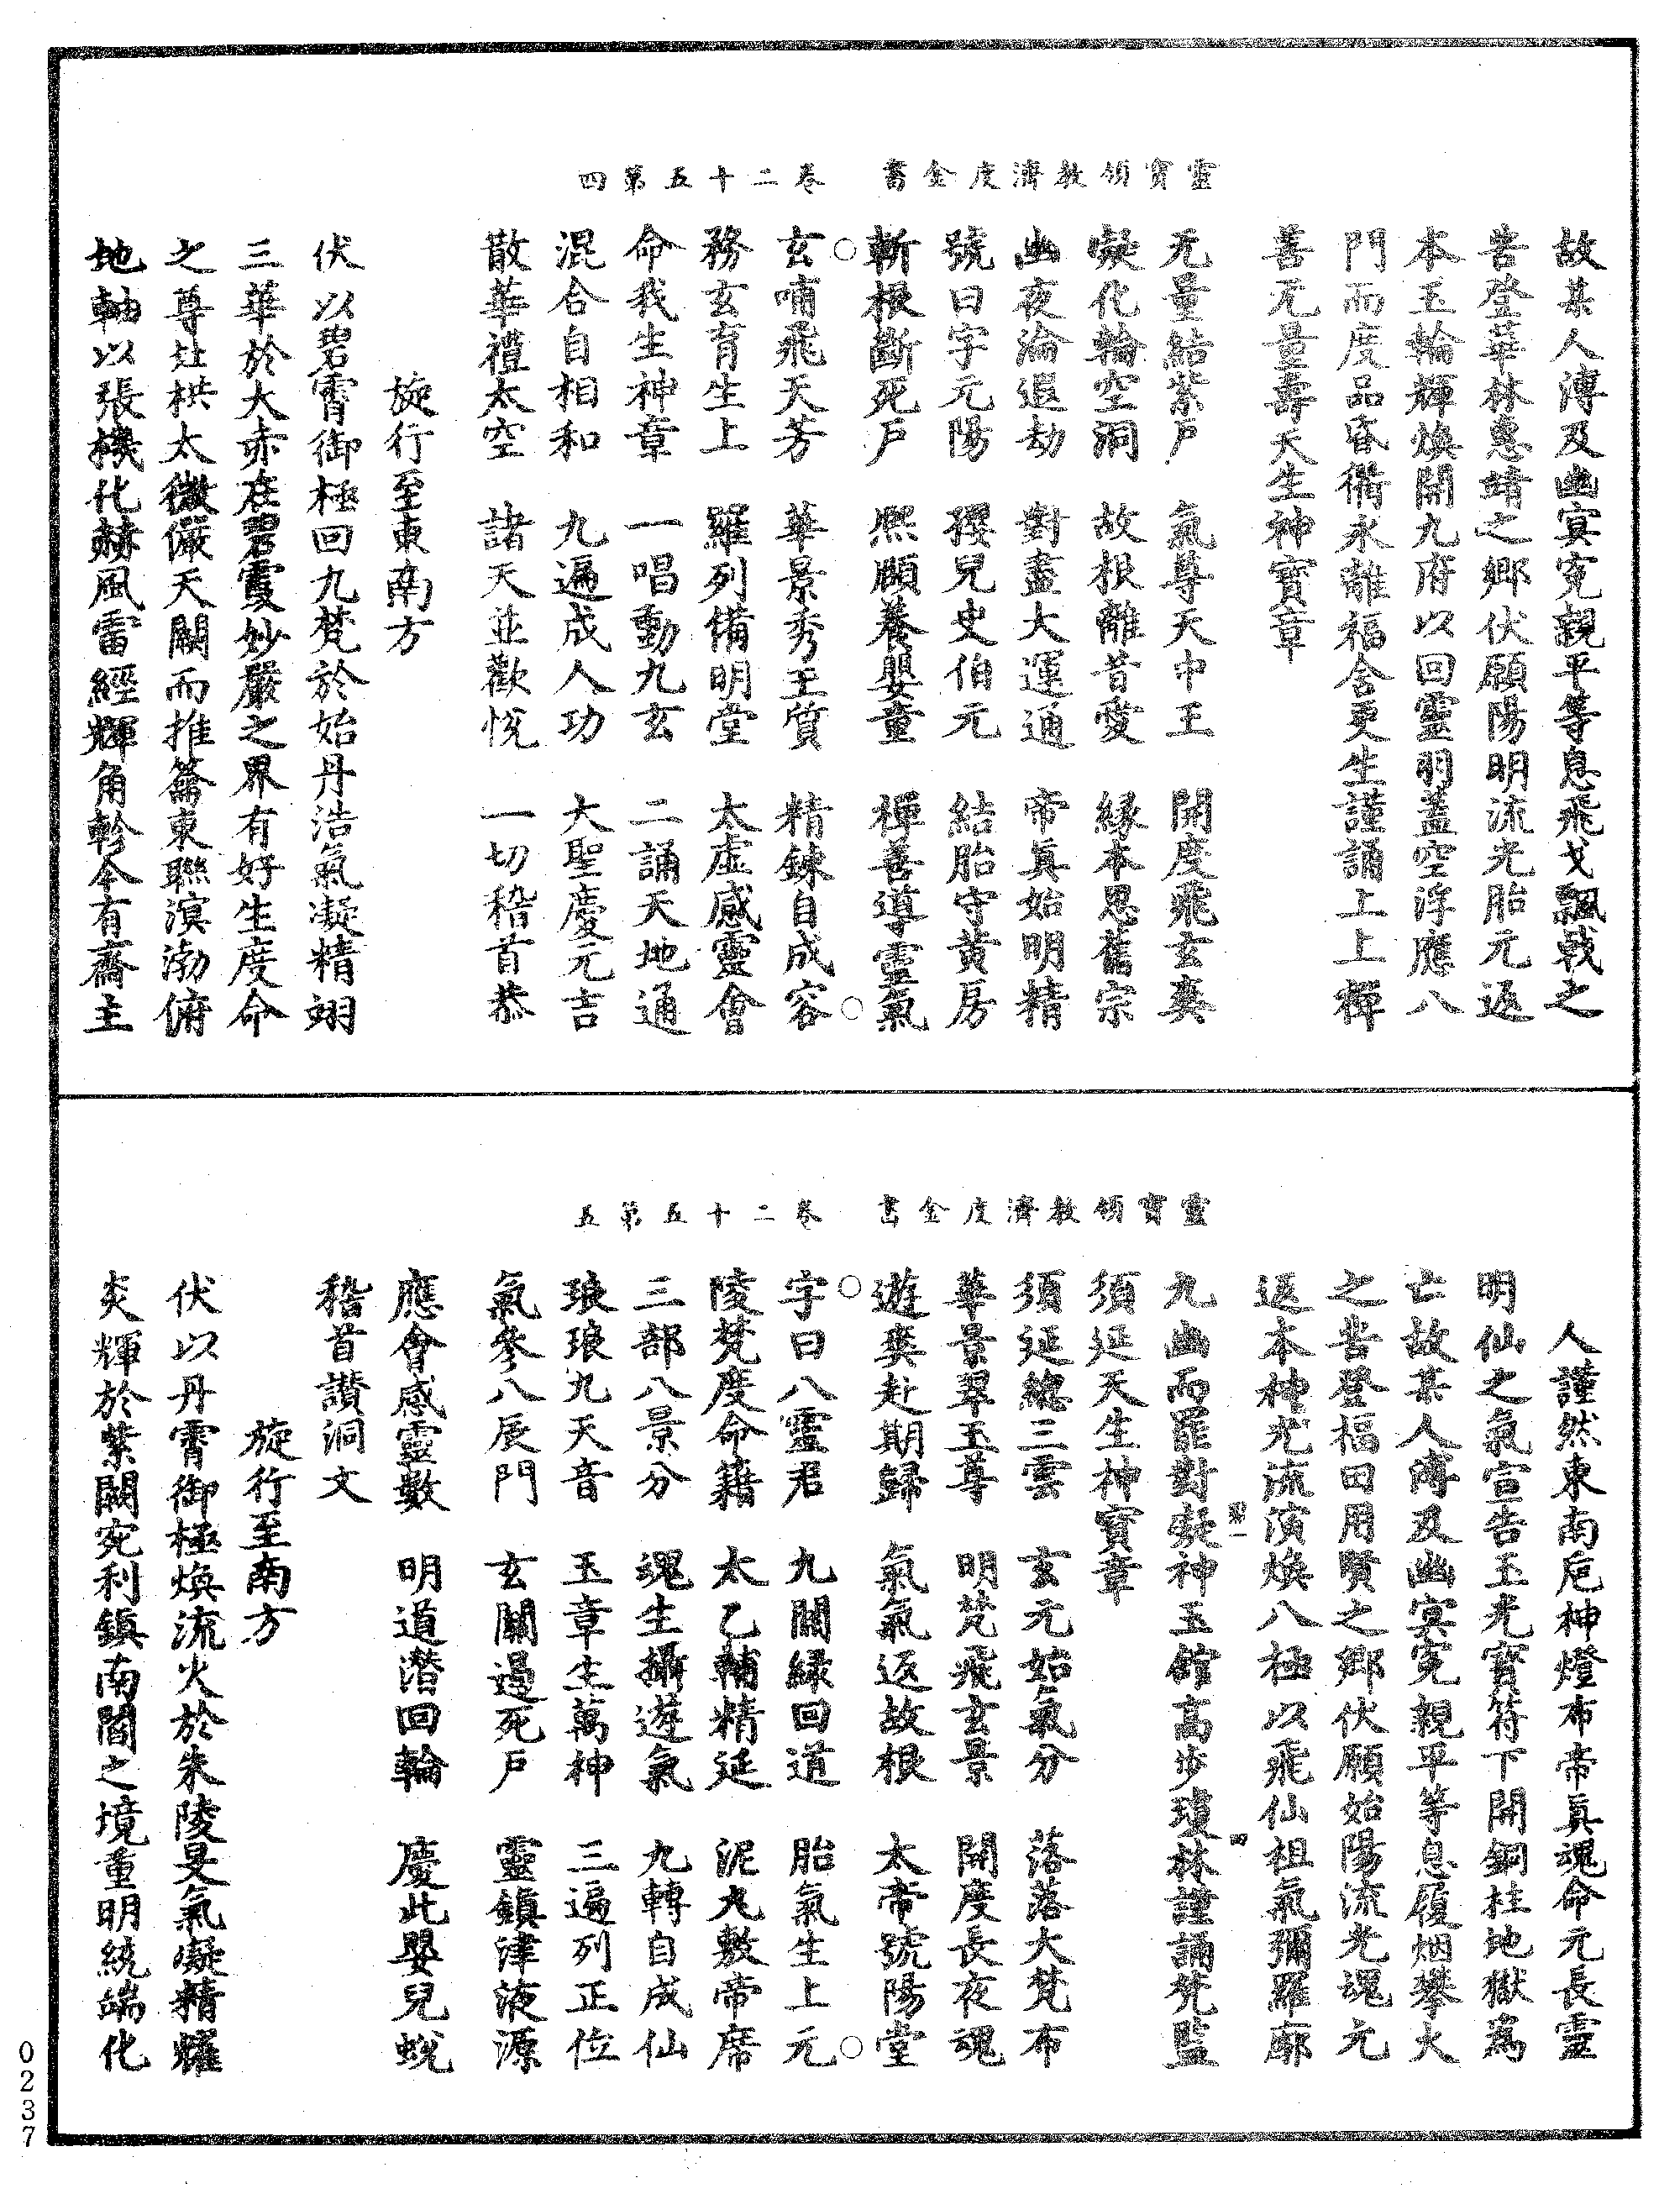 靈寶領教濟度金書　卷二十五第四
故某人溥及幽冥寃親平等息飛戈飄戟之
苦登華林惠靖之鄉伏願陽明流光胎元返
本玉輪輝煥開九府以回靈羽蓋空浮應八
門而度品昏衢永離福舍更生謹誦上上禪
善无量壽天生神寶章
无量結紫戶　氣尊天中王　開度飛玄爽
凝化輪空洞　故根離昔愛　緣本思舊宗
幽夜淪遐劫　對盡大運通　帝眞始明精
號曰字元陽　獶兒史伯元　結胎守黃房
斬根斷死戶　熙願養嬰童　禪善導靈氣
玄哺飛天芳　華景秀玉質　精鍊自成容
務玄育生上　羅列備明堂　太虛感靈會
命我生神章　一唱動九玄　二誦天地通
混合自相和　九遍成人功　大聖慶元吉
散華禮太空　諸天並歡悅　一切稽首恭
旋行至東南方
伏以碧霄御極回九梵於始丹浩氣凝精翊
三華於大赤在碧霞妙嚴之界有好生度命
之尊处栱太微儼天關而推籥東聯溟渤俯
地軸以張機化赫風雷經輝角軫今有齋主
靈寶領教濟度金書　卷二十五第五
人謹然東南巵神燈布帝眞魂命元長靈
明仙之氣宣告玉光寶符下開銅柱地獄爲
亡故某人溥及幽冥寃親平等息履烟攀火
之苦登福田用賢之鄉伏願始陽流光魂元
返本神光流演煥八極以飛仙祖氣彌羅廓
九幽而罷對凝神玉館高步瓊林謹誦梵監
須延天生神寶章
須延總三雲　玄元始氣分　落落大梵布
華景翠玉尊　明梵飛玄景　開度長夜魂
遊爽赴期歸　氣氣返故根　太帝號陽堂
字曰八靈君　九關緣回道　胎氣生上元
陵梵度命籍　太乙輔精延　泥丸敷帝席
三部八景分　魂生攝遊氣　九轉自成仙
琅琅九天音　玉章生萬神　三遍列正位
氣參八辰門　玄關遏死戶　靈鎮津液源
應會感靈數　明道潛回輪　慶此嬰兒蛻
稽首讚洞文
旋行至南方
伏以丹霄御極煥流火於朱陵旻氣凝精耀
炎輝於紫闕宛利鎮南閻之境重明統端化
0237